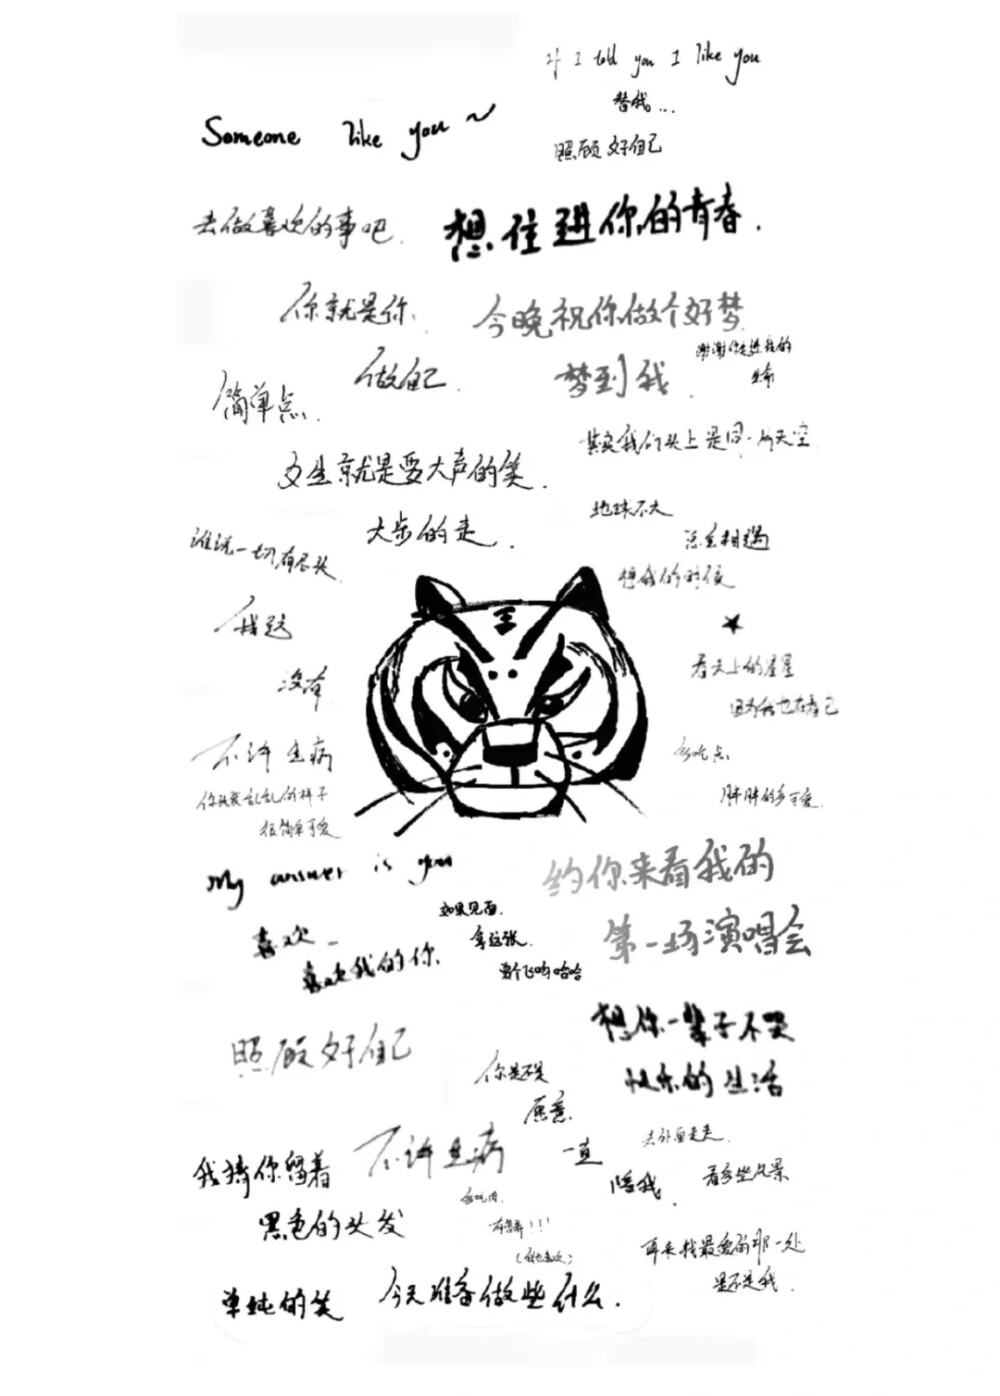 If I told you I like you
替我...
照顾好自己
Someone like you ~
去做喜欢的事吧.
想住进你的青春.
你就是你.
今晚祝你做个好梦
梦到我.
谢谢你走进我的
生命
做自己.
简单点.
其实我们头上是同一片天空
女生就是要大声的笑.
大步的走.
地球不大
总会相遇
谁说一切有尽头
想我的时候
我这
没有
看天上的星星
因为我也在看它
不许生病
你头发乱乱的样子
很简单可爱
多吃点
胖胖的多可爱.
My answer is you
约你来看我的
第一场演唱会
喜欢
喜欢我的你.
如果见面.
拿这张.
要个飞吻哈哈
想你一辈子不哭
快乐的生活
照顾好自己
你是不是
愿意.
一直
陪我.
去外面走走.
看多些风景
我猜你留着
黑色的头发
不许生病
多吃肉.
有营养!!!
(我也喜欢)
再来找最爱的那一处
是不是我.
单纯的笑
今天准备做些什么.